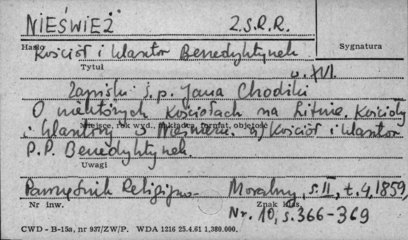 NIEŚWIEŻ Z.S.R.R.
Hasło Kościół i klasztor Benedyktynek Sygnatura
Tytuł w. XVI.
Zapiski ś.p. Jana Chodźki
O niektórych kościołach na Litwie. Kościoły
Miejsce, rok wyd., nakładca, format, objętość
i klasztory w Nieświeżu. Kościół i klasztor
P.P. Benedyktynek.
Uwagi
Pamiętnik Religijno-Moralny, s. II, t. 4, 1859,
Nr inw. Znak klas.
Nr. 10, s. 366-369
CWD - B-15a, nr 937/ZW/P. WDA 1216 25.4.61 1,380.000.